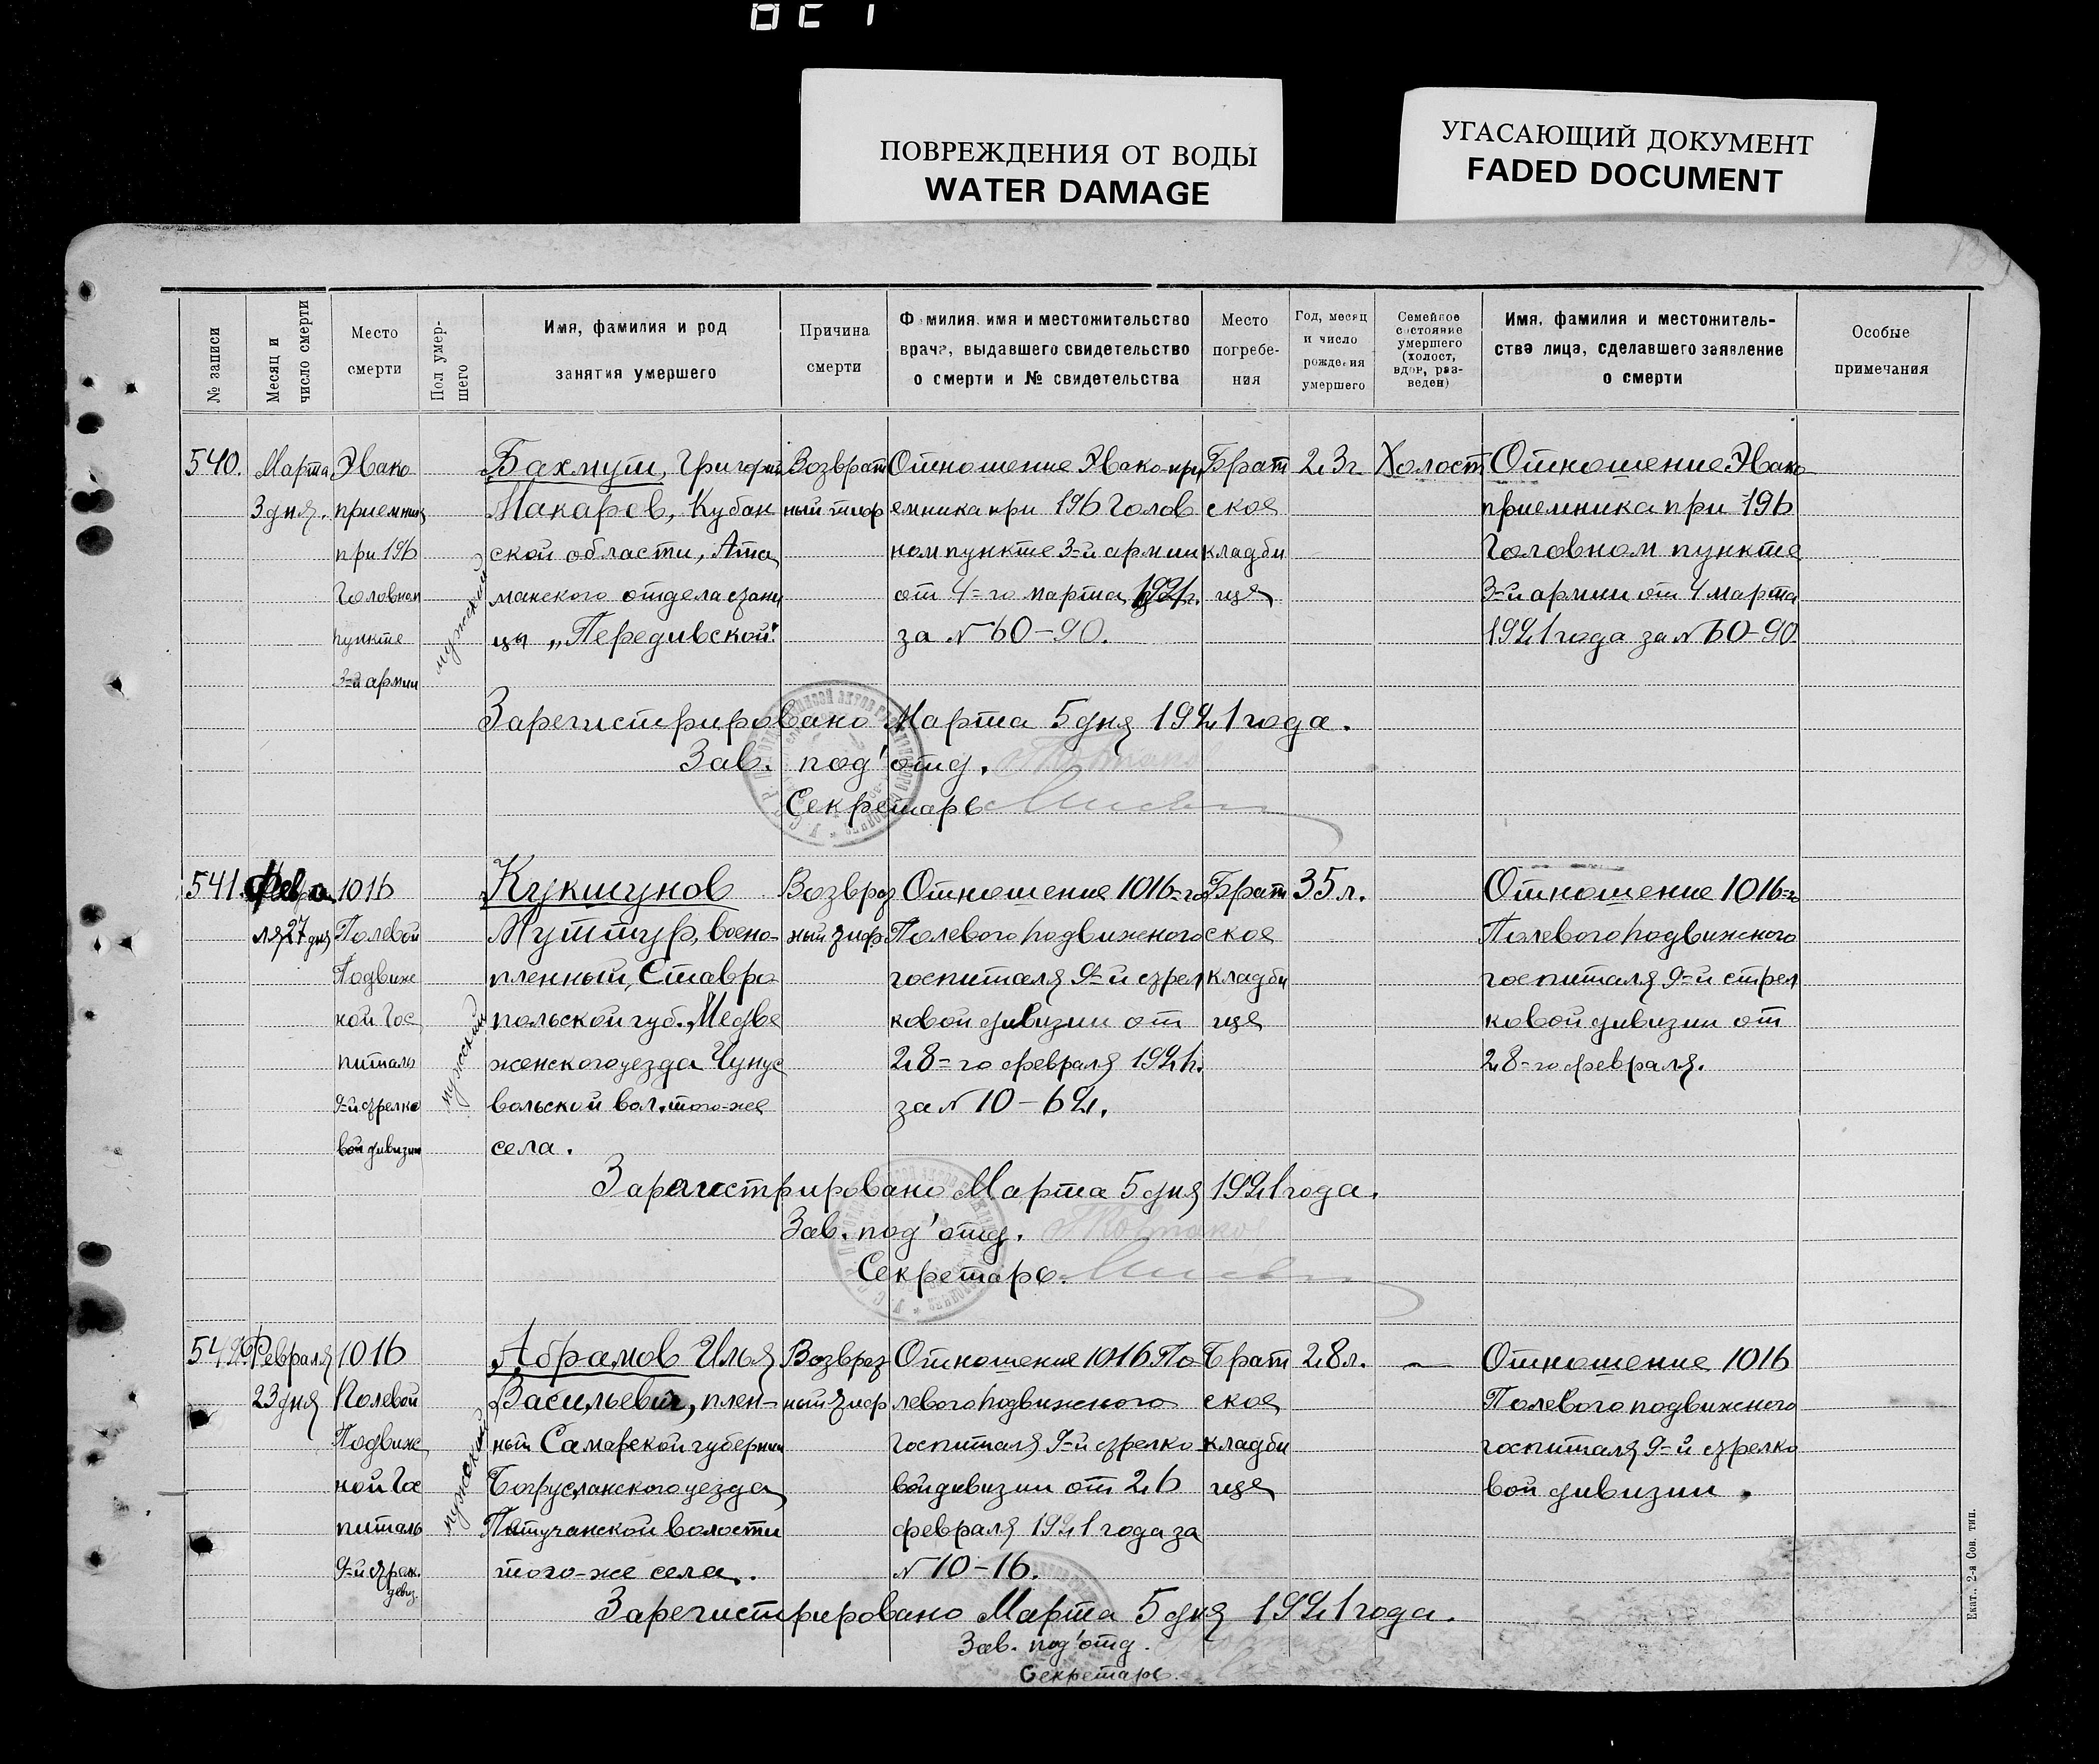 ПОВРЕЖДЕНИЯ ОТ ВОДЫ
WATER DAMAGE
УГАСАЮЩИЙ ДОКУМЕНТ
FADED DOCUMENT
№ записи
Месяц и
число смерти
Место
смерти
Пол умер-
шего
Имя, фамилия и род
занятия умершего
Причина
смерти
Фамилия, имя и местожительство
врача, выдавшего свидетельство
о смерти и № свидетельства
Место
погребе-
ния
Год, месяц
и число
рождения
умершего
Семейное
состояние
умершего
(холост,
вдов, раз-
веден)
Имя, фамилия и местожитель-
ства лица, сделавшего заявление
о смерти
Особые
примечания
540.
Марта
3 дня.
Эвако
приемник
при 196
Головном
пункте
3-й армии
мужской
Бахмут, Григорий
Макаров, Кубан
ской области, Ата
манского отдела стани
цы „Передивской"
Возврат
ный тиф
Отношение Эвако-при
емника при 196 Голов
ном пункте 3-й армии
от 4-го марта 1921г.
за № 60-90.
Брат
ское
кладби
ще
23г
Холост
Отношение Эвако
приемника при 196
Головном пункте
3-й армии от 4 марта
1921 года за № 60-90
Зарегистрировано Марта 5 дня 1921 года.
Зав. под'отд.
Секретарь
541.
Февра
ля 27 дня
1016
Полевой
Подвиж
ной Гос
питаль
9-й стрелко
вой дивизии
мужской
Кукшунов
Муттур, воено-
пленный, Ставро
польской губ., Медве
женского уезда Чунус
вольской вол. того-же
села.
Возвроз
ный тиф
Отношение 1016-го
Полевого подвижного
госпиталя 9-й стрел
ковой дивизии от
28-го февраля 1921г.
за № 10-62.
Брат
ское
кладби
ще
35 л.
Отношение 1016-го
Полевого подвижного
госпиталя 9-й стрел
ковой дивизии от
28-го февраля.
Зарегистрировано Марта 5 дня 1921 года.
Зав. под'отд.
Секретарь.
542.
Февраля
23 дня
1016
Полевой
Подвиж
ной Гос
питаль
9-й стрелк.
дивиз.
мужской
Абрамов Илья
Васильевич, плен-
ный Самарской губернии
Богрусланского уезда
волости
того-же села.
Возвроз
ный тиф
Отношение 1016 По
левого подвижного
госпиталя 9-й стрелко
вой дивизии от 26
февраля 1921 года за
№ 10-16.
Брат
ское
кладби
ще
28 л.
—
Отношение 1016
Полевого подвижного
госпиталя 9-й стрелко
вой дивизии.
Зарегистрировано Марта 5 дня 1921 года.
Зав. под'отд.
Секретарь.
Екат., 2-я Сов. тип.